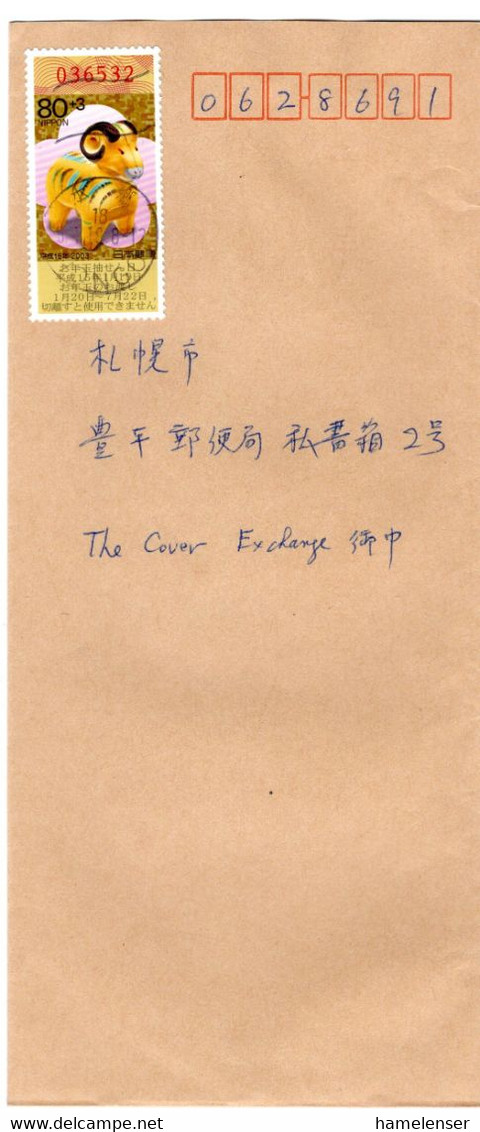 036532
80+3
NIPPON
平成15年・2003 日本郵便
お年玉抽せん日
平成15年1月19日
お年玉のお渡し
1月20日~7月22日
切離すと使用できません
062-8691
札幌市
豊平郵便局 私書箱 2号
The Cover Exchange 御中
DELCAMPE.NET
hamelenser